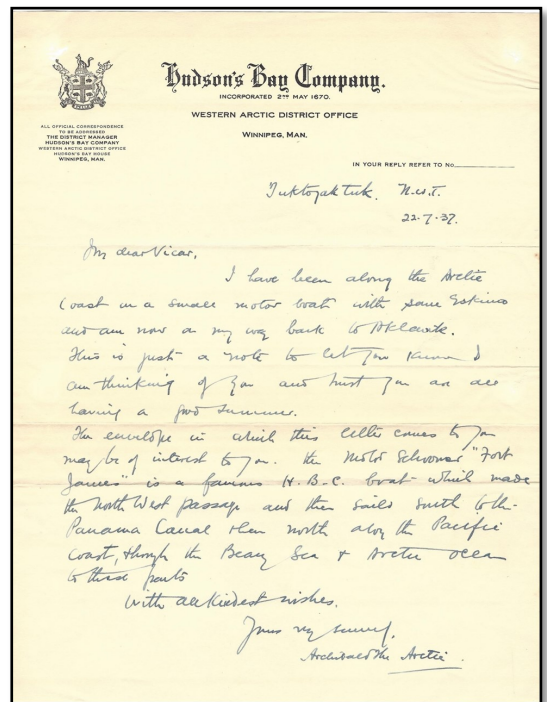 Hudson's Bay Company.
INCORPORATED 2ND MAY 1670.
WESTERN ARCTIC DISTRICT OFFICE
WINNIPEG, MAN.
ALL OFFICIAL CORRESPONDENCE
TO BE ADDRESSED
THE DISTRICT MANAGER
HUDSON'S BAY COMPANY
WESTERN ARCTIC DISTRICT OFFICE
HUDSON'S BAY HOUSE
WINNIPEG, MAN.
IN YOUR REPLY REFER TO No.
Tuktoyaktuk. N.W.T.
22-7-37.
My dear Vicar,
I have been along the Arctic
Coast in a small motor boat with some Eskimos
and am now on my way back to Aklavik.
This is just a note to let you know I
am thinking of you and trust you are all
having a good summer.
The envelope in which this letter comes to you
may be of interest to you. The Motor Schooner "Fort
James" is a famous H.B.C. boat which made
the North West passage and then sailed south to the
Panama Canal then north along the Pacific
Coast, through the Bering Sea + Arctic Ocean
to these parts
With all kindest wishes.
Yours very
Archibald The Arctic.